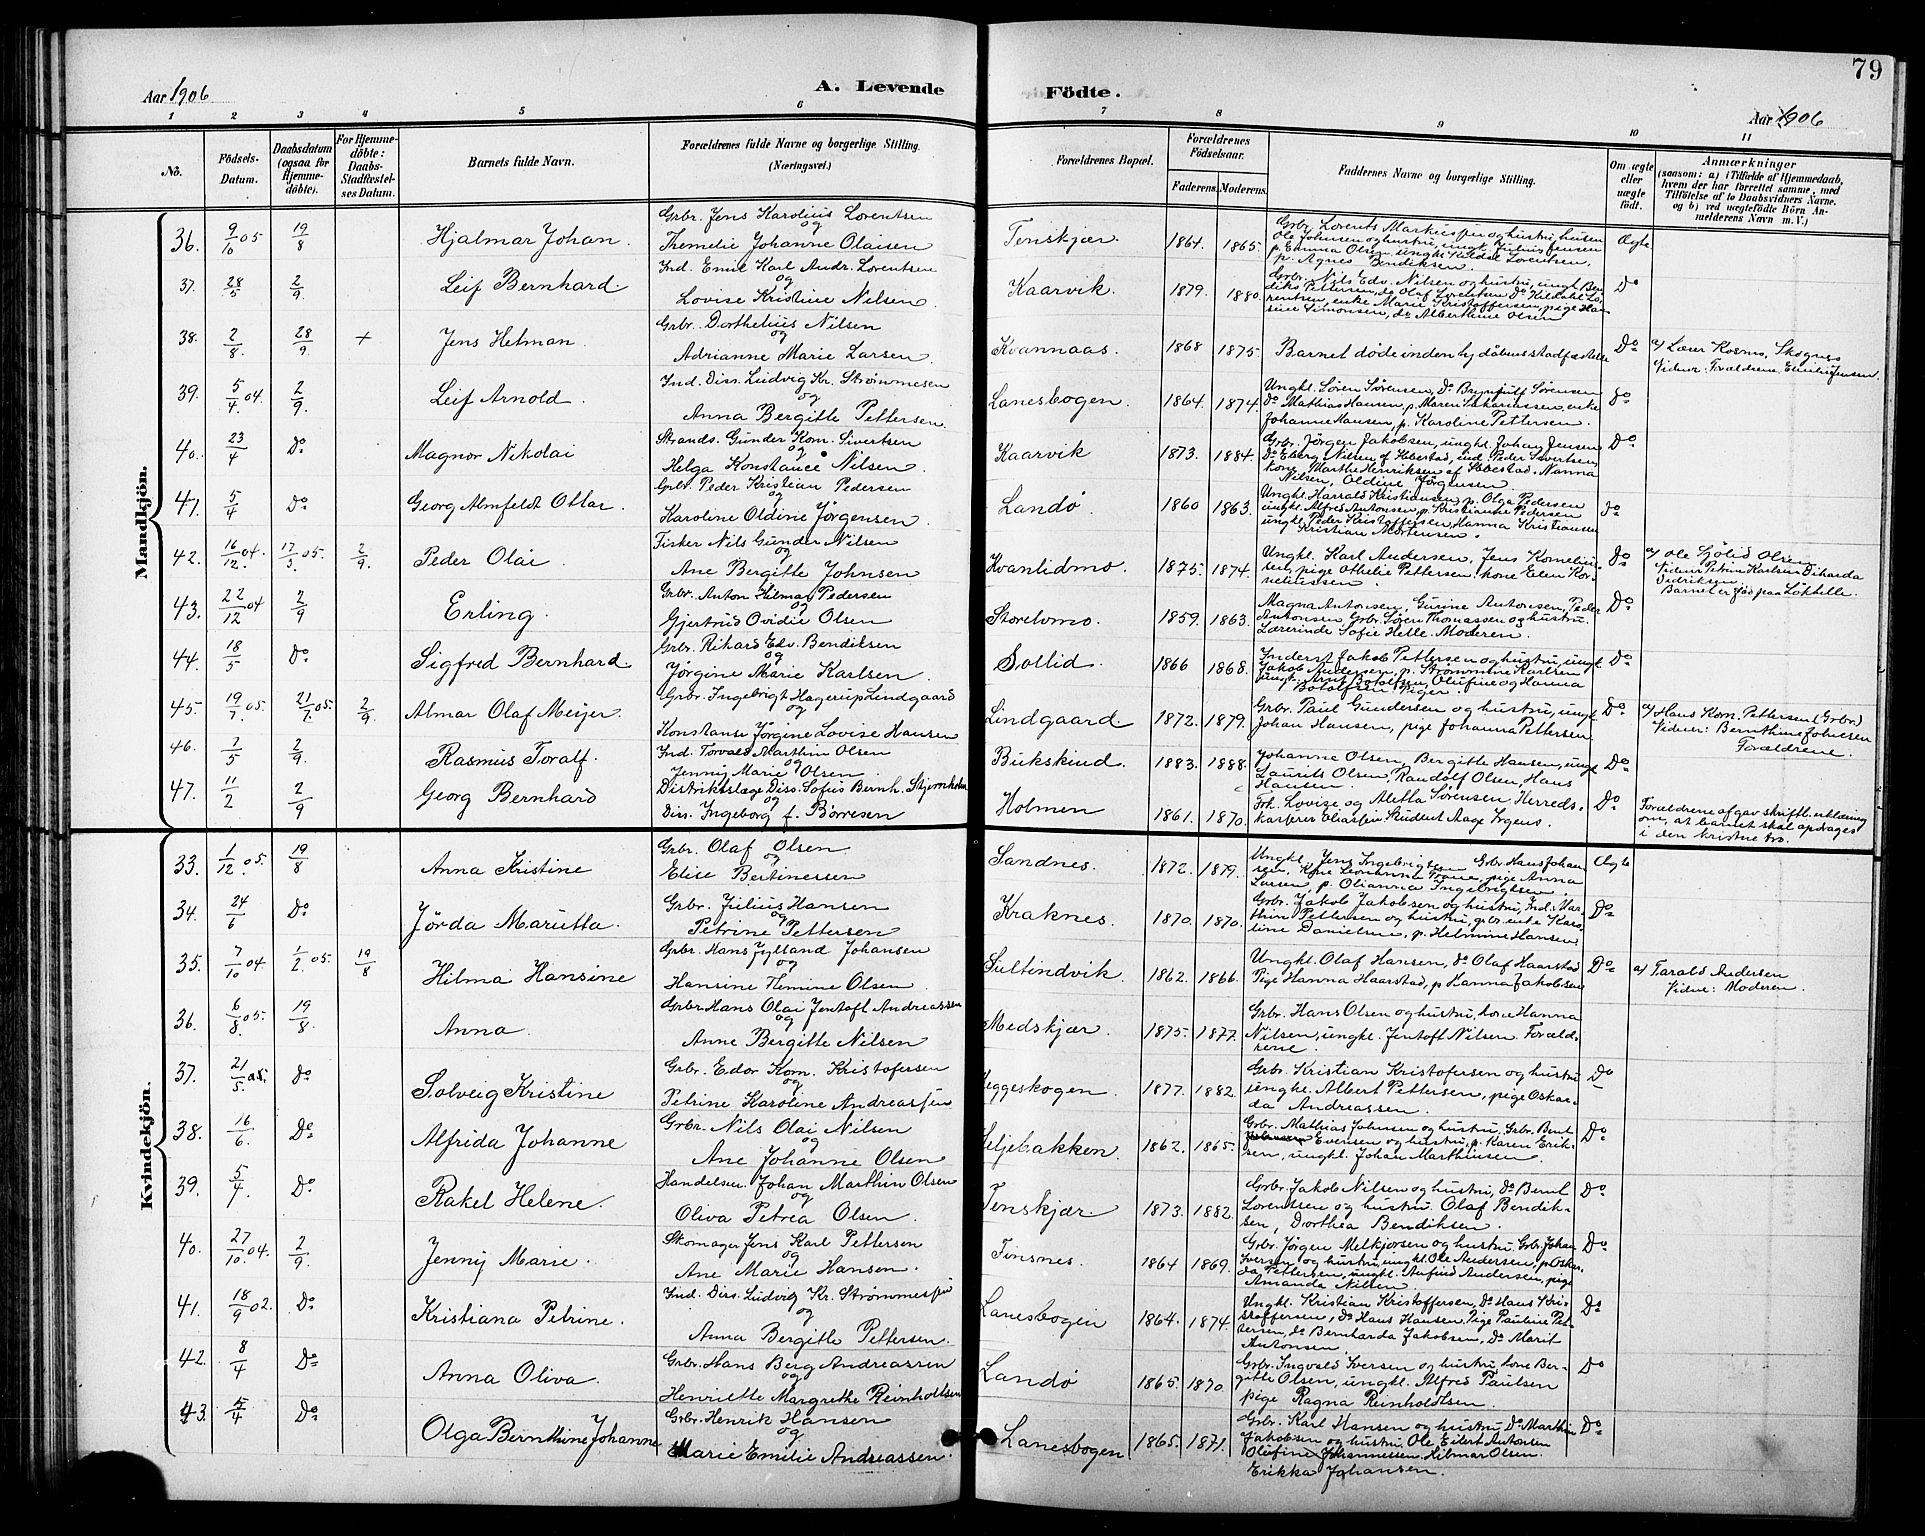 79
Aar 1906
A. Levende
Födte.
Aar 1906
1 2 3 4 5 6 7 8 9 10 11
No.
Födsels-
Datum.
Daabsdatum
(ogsaa for
Hjemme-
döbte).
For Hjemme-
döbte:
Daabs-
Stadfæstel-
ses Datum.
Barnets fulde Navn.
Forældrenes fulde Navne og borgerlige Stilling.
(Næringsvei.)
Forældrenes Bopæl.
Forældrenes
Födselsaar.
Faderens. Moderens.
Faddernes Navne og borgerlige Stilling.
Om ægte
eller
uægte
födt.
Anmærkninger
(saasom: a) i Tilfælde af Hjemmedaab,
hvem der har forrettet samme, med
Tilföielse af to Daabsvidners Navne,
og b) ved uægtefödte Börn An-
melderens Navn m. V.)
Mandkjön.
36. 9/10 05 19/8 Hjalmar Johan.
Grbr. Jens Karolius Lorentsen
og
Themelie Johanne Olaisen
Tenskjær. 1864. 1865.
Grbr. Lorents Markussen og hustru, husm
Ole Johnsen og hustru, ungk. Julius Jensen
p. Emma Olsen, ungk. Kildal Lorentsen.
p. Agnes Bendiksen.
Ægte
37. 28/5 2/9 Leif Bernhard
Ind. Emil Karl Andr. Lorentsen
og
Lovise Kristine Nilsen.
Kaarvik. 1879. 1880.
Grbr. Nils Edv. Nilsen og hustru, ungk. Ben-
diks Pettersen, do Olaf Lorentsen Do Kildahl Lo-
rentsen, enke Marie Kristoffersen, pige Han-
sine Simonsen, do Alberthine Olsen
Do
38. 2/8 28/9 + Jens Helman.
Grbr. Dorthelius Nilsen
og
Adrianne Marie Larsen
Kvannaas. 1868 1875.
Barnet döde inden hj. dåbens stadfæstelse
Do
a) Læser Kosmo, Skognes
Vidner: Forældrene, Emilie Jensen.
39. 5/4 04. 2/9 Leif Arnold.
Ind. Diss. Ludvig Kr. Strømmesen
og
Anna Bergitte Pettersen.
Lanesbogen. 1864. 1874.
Ungk. Sören Sörensen, Do Brynjulf Sörensen
Do Mathias Hansen, p. Maren Sakariassen, enke
Johanne Hansen, p. Karoline Pettersen.
Do
40. 23/4 Do Magnor Nikolai
Strands. Gunder Korn. Sivertsen
og
Helga Konstance Nilsen.
Kaarvik 1873. 1884.
Grbr. Jörgen Jakobsen, ungk. Johan Jensen
Do Eberg Nilsen af Sibestad, ind. Peder Sivertsen
kone Marthe Henriksen af Sibestad. Nanna
Nilsen, Oldine Jörgensen
Do
41. 5/4 Do Georg Almfeldt Ottar.
Grbr. Peder Kristian Pedersen
og
Karoline Oldine Jörgensen.
Landø. 1860 1863.
Ungk. Harrald Kristiansen, p. Olga Pedersen
ungk. Alfred Antonsen, p. Kristianne Pedersen
ungk. Peder Kristoffersen, Hanna Kristiansen
Kristian Mortensen.
Do
42. 16/12 04. 17/3 05. 2/9 Peder Olai
Fisker Nils Gunder Nilsen
og
Ane Bergitte Johnsen
Kvanlidmo. 1875. 1874.
Ungk. Karl Andersen, Jens Kornelius-
sen, pige Othelie Pettersen, kone Elen Kor-
neliussen
Do
a) Ole Sjölid Olsen
Vidner Petrine Karlsen Dikarda
Didriksen
Barnet er fød paa Löktelle.
43. 22/12 04 2/9 Erling.
Grbr. Anton Hilmar Pedersen
og
Gjertrud Ovidie Olsen
Storelvmo. 1859. 1863.
Magna Antonsen, Gurine Antonsen, Peder
Antonsen. Grbr. Søren Thomassen og hustru.
Lærerinde Sofie Helle. Moderen.
Do
44. 18/5 Do Sigfred Bernhard
Grbr. Rikard Edv. Bendiksen
og
Jørgine Marie Karlsen.
Sollid. 1866 1868.
Inderst Jakob Pettersen og hustru, ungk.
Jakob Andersen, p. Strømmine Karlsen
ungk. Arnt Botolfsen, Olufine og Hanna
Botolfsen Piger.
Do
45. 19/7 05. 21/7 05. 2/9 Almar Olaf Meijer.
Grbr. Ingebrigt Hagerup Lindgaard
og
Konstanse Jörgine Lovise Hansen
Lindgaard 1872. 1879.
Grbr. Paul Gundersen og hustru, ungk.
Johan Hansen, pige Johanna Pettersen
Do
a) Hans Korn. Pettersen (Grbr.)
Vidner: Bernthine Johnsen
Forældrene.
46. 7/5 2/9 Rasmus Toralf.
Ind. Torvald Marthin Olsen
og
Jenny Marie Olsen.
Bukskind. 1883. 1888.
Johanne Olsen, Bergitte Hansen, ungk
Laurits Olsen, Randolf Olsen, Hans
Hansen.
Do
47. 11/2 2/9 Georg Bernhard
Distriktslæge Diss. Sofus Bernh. Stjernholm
og
Diss. Ingeborg f. Børresen
Holmen 1861. 1870.
Frk. Lovise og Aletta Sørensen, Herreds-
kasserer Eliassen Student Aage Irgens.
Do
Forældrene afgav skriftl. erklæring
om, at barnet skal opdrages
i den kristne tro.
Kvindekjön.
33. 1/12 05. 19/8 Anna Kristine
Grbr. Olaf Olsen
og
Elise Bertinessen
Sandnes. 1872. 1879.
Ungk. Jens Ingebrigtsen Grbr. Hans Johan
sen, kone Leonharda Trane, pige Anna
Larsen, p. Olianna Ingebrigtsen.
Ægte
34. 24/6 Do Jörda Marutta.
Grbr. Julius Hansen
og
Petrine Pettersen
Kraknes. 1870. 1870.
Grbr. Jakob Jakobsen og hustru, Ind. Mar-
thin Pettersen og hustru, gbr. enke Karo-
line Danielsen, p. Helmine Hansen
Do
35. 7/10 04. 1/2 05. 19/8 Hilma Hansine
Grbr. Hans Jylland Johansen
og
Hansine Flemine Olsen.
Sultindvik. 1862. 1866.
Ungk. Olaf Hansen, do Olaf Haarstad
Pige Hanna Haarstad, p. Hanna Jakobsen
Do
a) Tarald Andersen
Vidne: Moderen.
36. 6/8 05. 19/8 Anna.
Grbr. Hans Olai Jentoft Andreassen
og
Anne Bergitte Nilsen
Medskjær. 1875. 1877.
Grbr. Hans Olsen og hustru, kone Hanna
Nilsen, ungk. Jentoft Nilsen. Foræld-
rene.
37. 21/5 05. Do Solveig Kristine
Grbr. Edor Korn. Kristofersen
og
Petrine Karoline Andreassen
Heggeskogen. 1877. 1882.
Grbr. Kristian Kristofersen og hustru
ungk. Albert Pettersen, pige Oskar-
da Andreassen.
Do
38. 16/6. Do Alfrida Johanne
Grbr. Nils Olai Nilsen
og
Ane Johanne Olsen
Seljebakken. 1862. 1865.
Grbr. Mathias Johnsen og hustru, Grbr. Bent
Evensen og hustru, p. Karen Erik-
sen, ungk. Johan Marthinsen.
Do
39. 5/4 Do Rakel Helene.
Handelsm. Johan Marthin Olsen
og
Oliva Petrea Olsen.
Tenskjær 1873. 1882.
Grbr. Jakob Nilsen og hustru, Do Bernt
Lorentsen og hustru. Olaf Bendik-
sen, Dorthea Bendiksen.
Do
40. 27/10 04. 2/9 Jenny Marie.
Skomager Jens Karl Pettersen
og
Ane Marie Hansen.
Finsnes. 1864 1869.
Grbr. Jörgen Melkjorsen og hustru. Grbr. Johan
Iversen og hustru, ungk. Ole Andersen, p. Oskar-
da Pettersen, ungk. Anfind Andersen, pige
Amanda Nilsen
Do
41. 18/9 02. Do Kristiana Petrine.
Ind. Diss. Ludvig Kr. Strømmesen
og
Anna Bergitte Pettersen.
Lanesbogen 1864. 1874.
Ungk. Kristian Kristoffersen, Do Hans Kri-
stoffersen, Do Hans Hansen, Pige Pauline Pet-
tersen, do Bernharda Jakobsen, Do Marit
Antonsen.
Do
42. 8/4 Do Anna Oliva.
Grbr. Hans Berg Andreassen
og
Henriette Margrethe Reinholtsen
Landø 1865. 1870.
Grbr. Ingvald Iversen og hustru, kone Ber-
gitte Olsen, ungk. Alfred Paulsen
pige Ragna Reinholdtsen.
Do
43. 5/4 Do Olga Bernthine Johanne
Grbr. Henrik Hansen
og
Marie Emilie Andreassen.
Lanesbogen 1865. 1871.
Grbr. Karl Hansen og hustru, Do Marthin
Jakobsen og hustru, Ole Eilert Antonsen
Olufine Johannessen. Hilmar Olsen.
Erikka Johansen.
Do